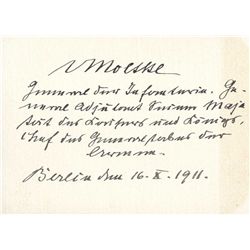 v Moltke
General der Infanterie. Ge-
neral Adjutant Seiner Maje
stät des Kaisers und Königs,
Chef des Generalstabes der
Armee.
Berlin den 16. X. 1911.